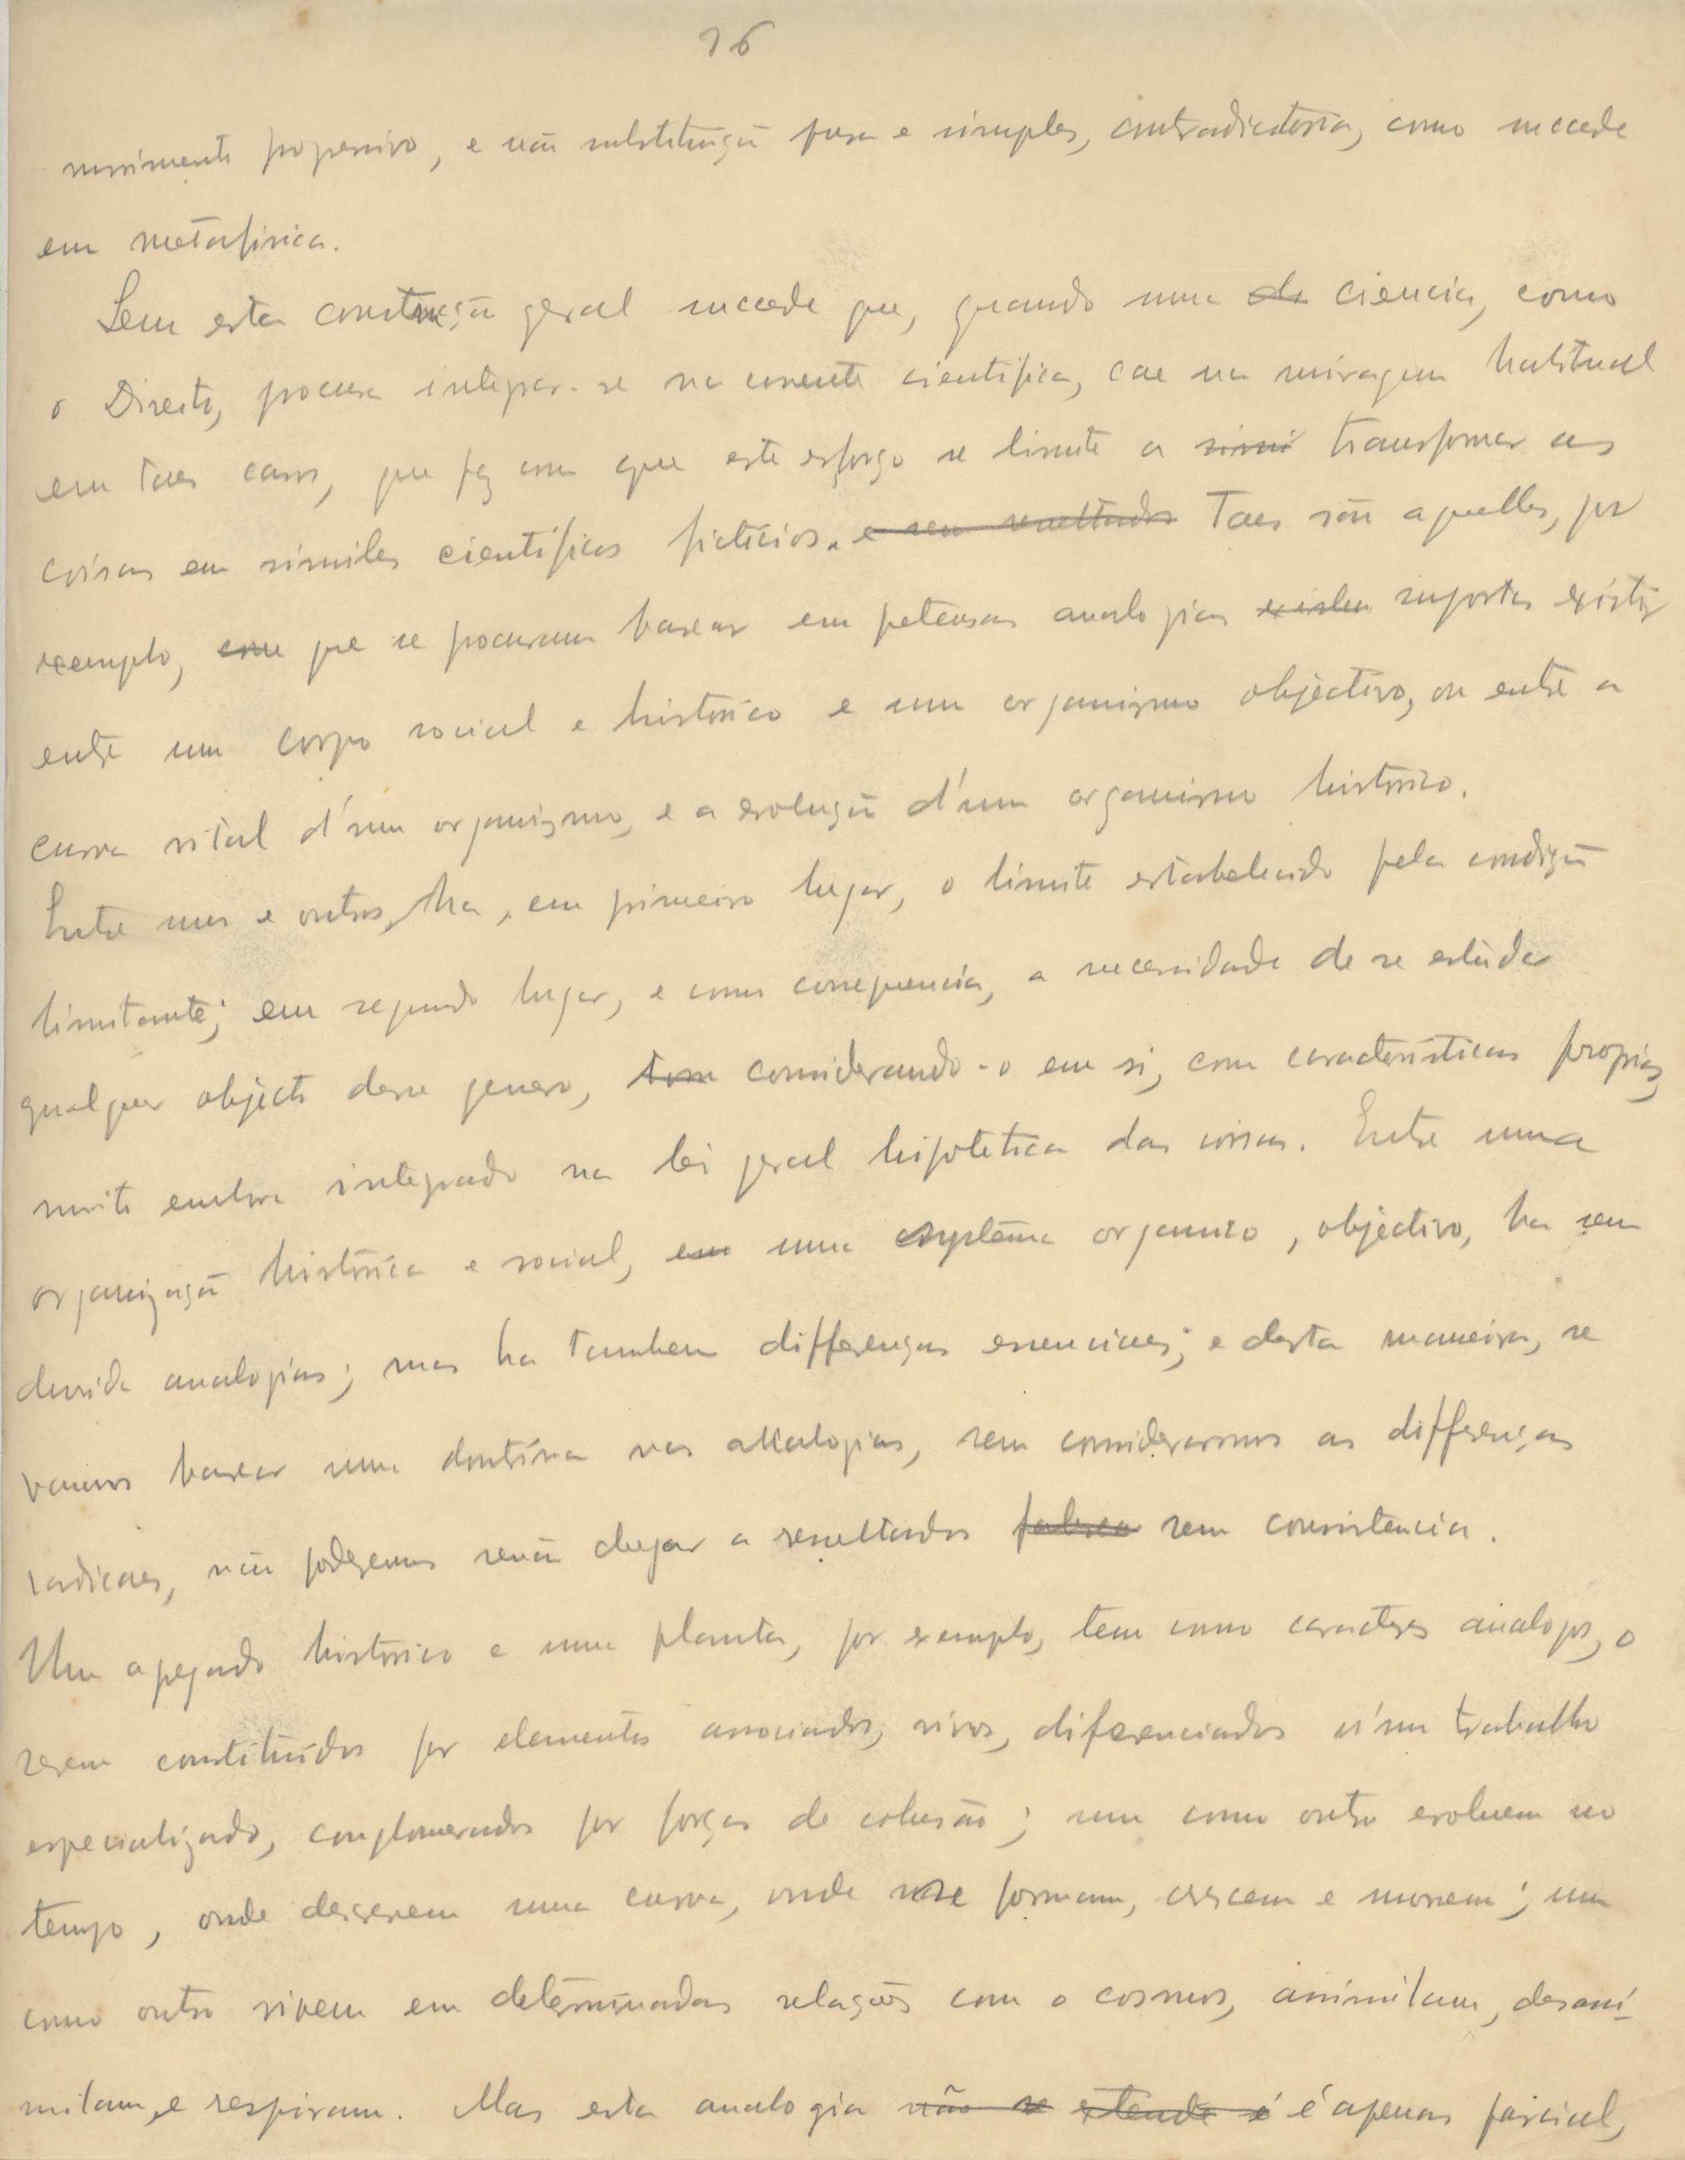 76
movimento progressivo, e não substituição pura e simples, contradictoria, como succede
em metafisica.
Sem esta construcção geral succede que, quando uma de ciencia, como
o Direito, procura integrar-se na corrente cientifica, cae na miragem habitual
em taes casos, que faz com que este esforço se limite a simi transformar as
coisas em similes cientificos ficticios. e seus resultados Taes são aquelles, por
exemplo, em que se procuram basear em pretensas analogias existen supostas existir
entre um corpo social e historico e um organismo objectivo, ou entre a
curva vital d'um organismo, e a evolução d'um organismo historico.
Entre uns e outros, ha, em primeiro lugar, o limite estabelecido pela condição
limitante; em segundo lugar, e como consequencia, a necessidade de se estudar
qualquer objecto desse genero, tom considerando-o em si, com caracteristicas proprias,
muito embora integrado na lei geral hipotetica das coisas. Entre uma
organização historica e social, em um systema organico, objectivo, ha sem
duvida analogias; mas ha tambem differenças essenciaes; e desta maneira, se
vamos basear uma doutrina nas analogias, sem considerarmos as differenças
radicaes, não podemos senão chegar a resultados falsea sem consistencia.
Um agregado historico e uma planta, por exemplo, tem como caracteres analogos, o
serem constituidos por elementos associados, vivos, diferenciados n'um trabalho
especializado, conglomerados por forças de cohesão; um como outro evoluem no
tempo, onde descrevem uma curva, onde se formam, crescem e morrem; um
como outro vivem em determinadas relações com o cosmos, assimilam, desassi-
milam, e respiram. Mas esta analogia não se extende é é apenas parcial,